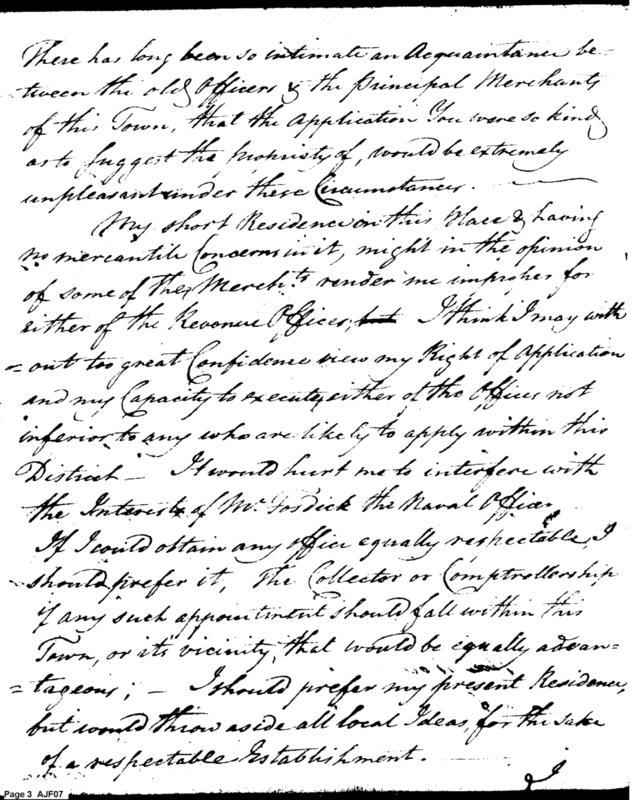 There has long been so intimate an Acquaintance be-
-tween the old Officers & the Principal Merchants
of this Town, that the Application You were so kind
as to suggest the Propriety of, would be extremely
unpleasant under these Circumstances. —
My short Residence in this Place & having
no mercantile Concerns in it, might in the opinion
of some of the Merchts render me improper for
either of the Revenue Offices, but I think I may with
=out too great Confidence view my Right of Application
and my Capacity to execute either of the Offices not
inferior to any who are likely to apply within this
District — It would hurt me to interfere with
the Interest of Mr. Fosdick the Naval Officer
If I could obtain any office equally respectable, I
should prefer it, The Collector or Comptrollership
if any such appointment should fall within this
Town, or its vicinity, that would be equally advan-
=tageous; — I should prefer my present Residence,
but would throw aside all local Ideas, for the sake
of a respectable Establishment. —
I
Page 3 AJF07